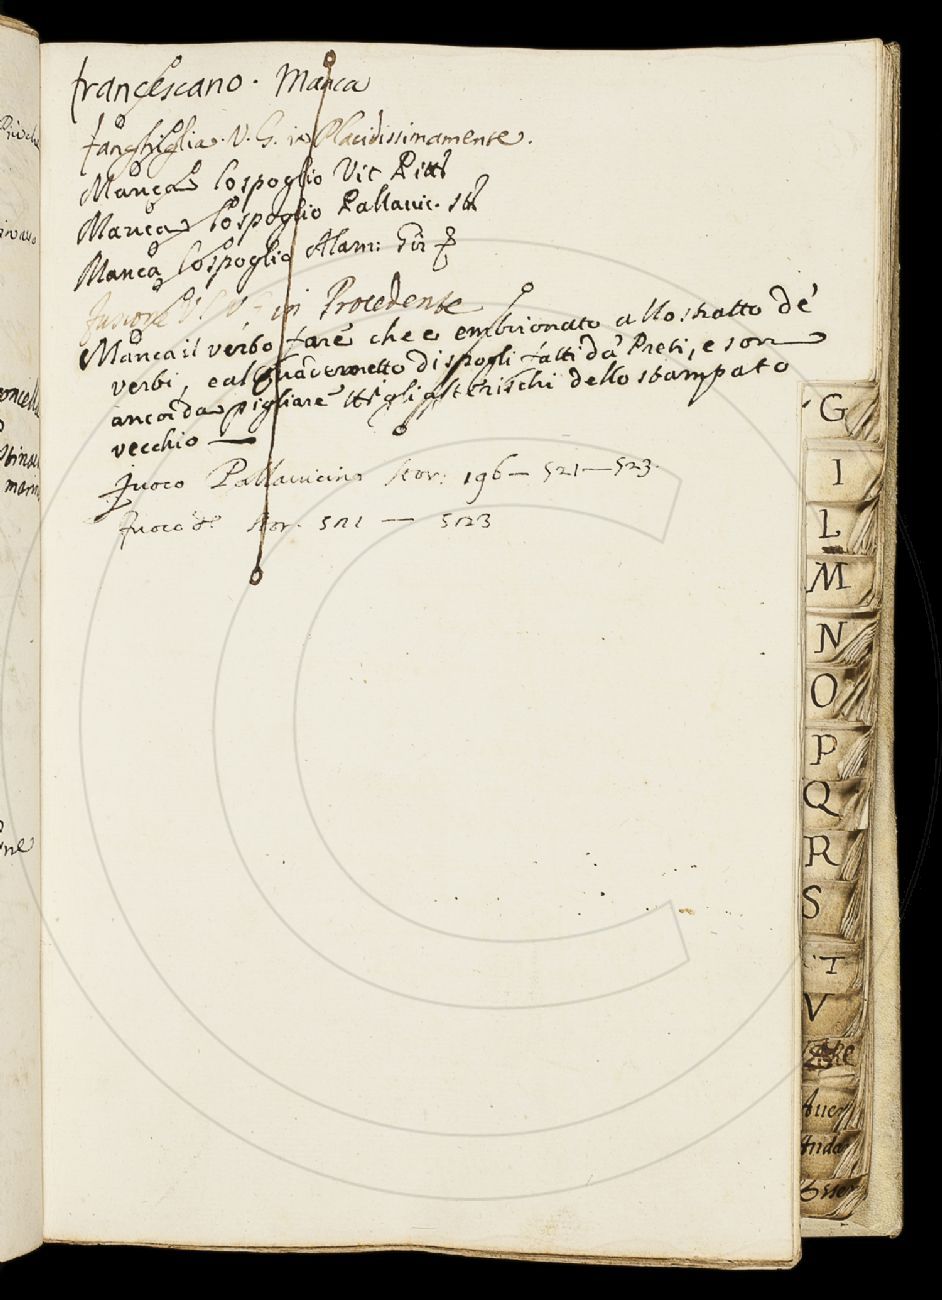 francescano. Manca
fanghiglia. V. G. in Placidissimamente.
Manca lo spoglio Vit Pitt
Manca lo spoglio Pallavic. st
Manca lo spoglio Alam: Gir
V. in Procedente
Manca il verbo fare che e embrionato allo stratto de'
verbi, e al quadernetto di spogli fatti da Preti, e son
ancor da pigliare tti gli asterischi dello stampato
vecchio —
fuoco Pallavicino stor: 196 — 521 — 523.
fuoco stor. 521 — 523
G
I
L
M
N
O
P
Q
R
S
T
V
Auer
Anda
Esse